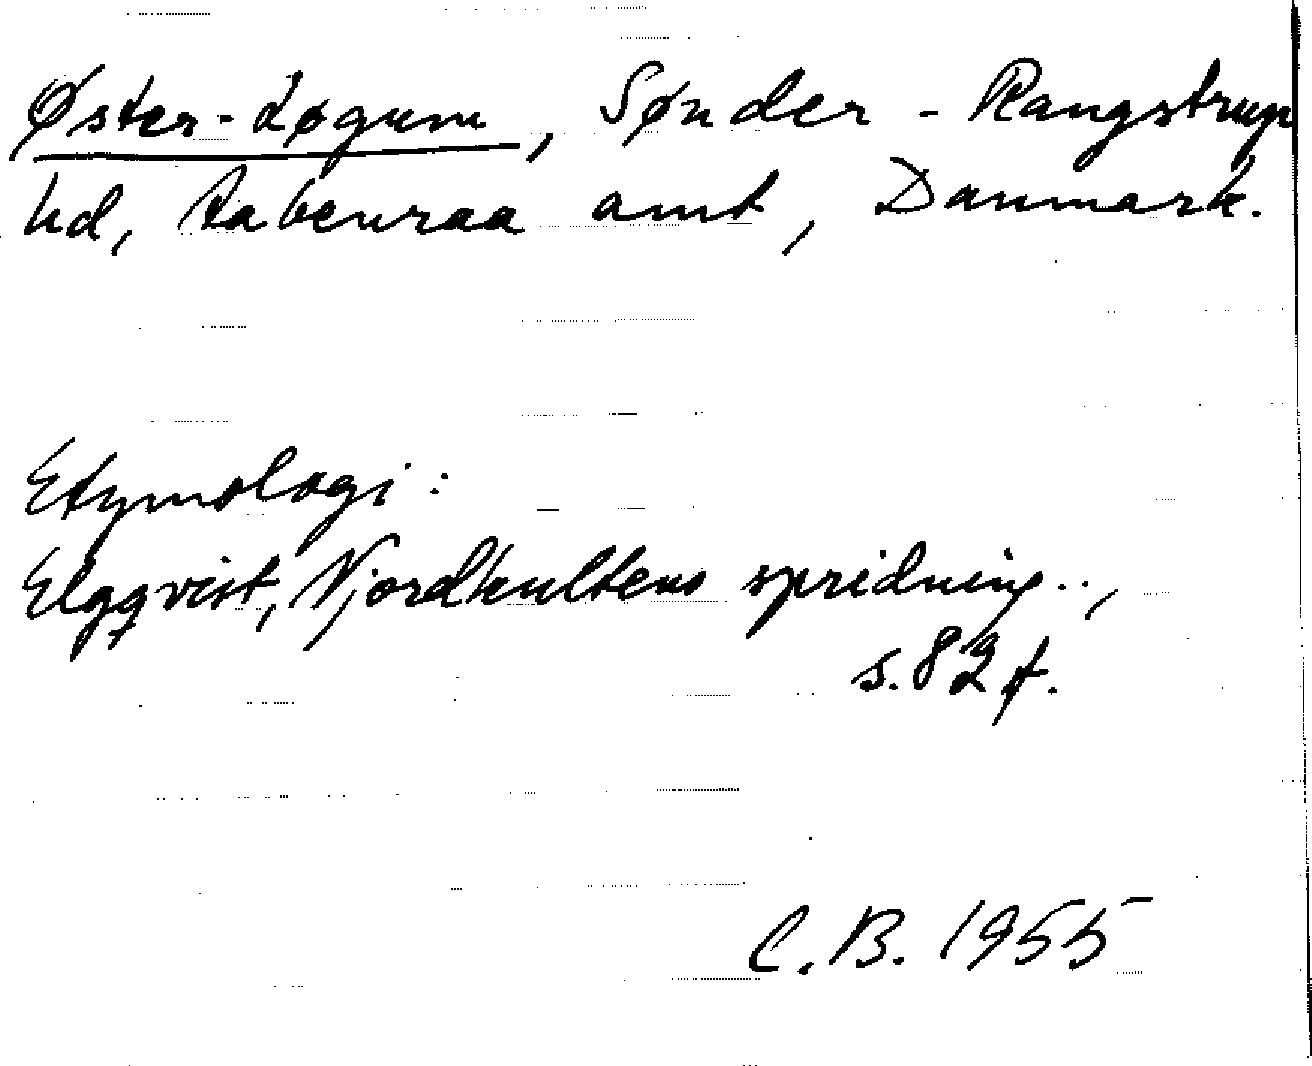 Øster-Løgum, Sønder-Rangstrup
hd, Aabenraa amt, Danmark.
Etymologi:
Elgqvist, Njordkultens spridning..,
s. 82 f.
C.B. 1955